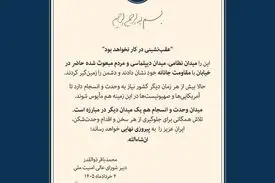 بسم الله الرحمن الرحیم
"عقب‌نشینی در کار نخواهد بود"
این را میدان نظامی، میدان دیپلماسی و مردم مبعوث شده حاضر در
خیابان با مقاومت جانانه خود نشان دادند و دشمن را زمین‌گیر کردند.
حالا بیش از هر زمان دیگر کشور نیاز به وحدت و انسجام دارد تا
آمریکایی‌ها و صهیونیست‌ها در این زمینه هم مأیوس شوند.
میدان وحدت و انسجام هم یک میدان دیگر در مبارزه است.
تلاش همگانی برای جلوگیری از هر سخن و اقدام وحدت‌شکن،
ایران عزیز را به پیروزی نهایی خواهد رساند؛
ان‌شاءالله.
محمدباقر ذوالقدر
دبیر شورای عالی امنیت ملی
۴ خردادماه ۱۴۰۵